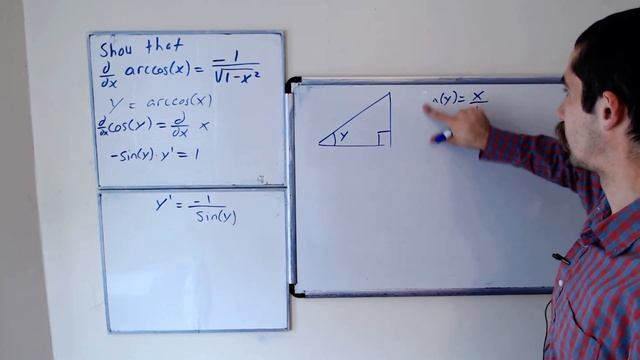 Show that
d/dx arccos(x) = -1/√1-x²
y = arccos(x)
d/dx cos(y) = d/dx x
-sin(y) · y' = 1
y' = -1/sin(y)
y
(y) = x